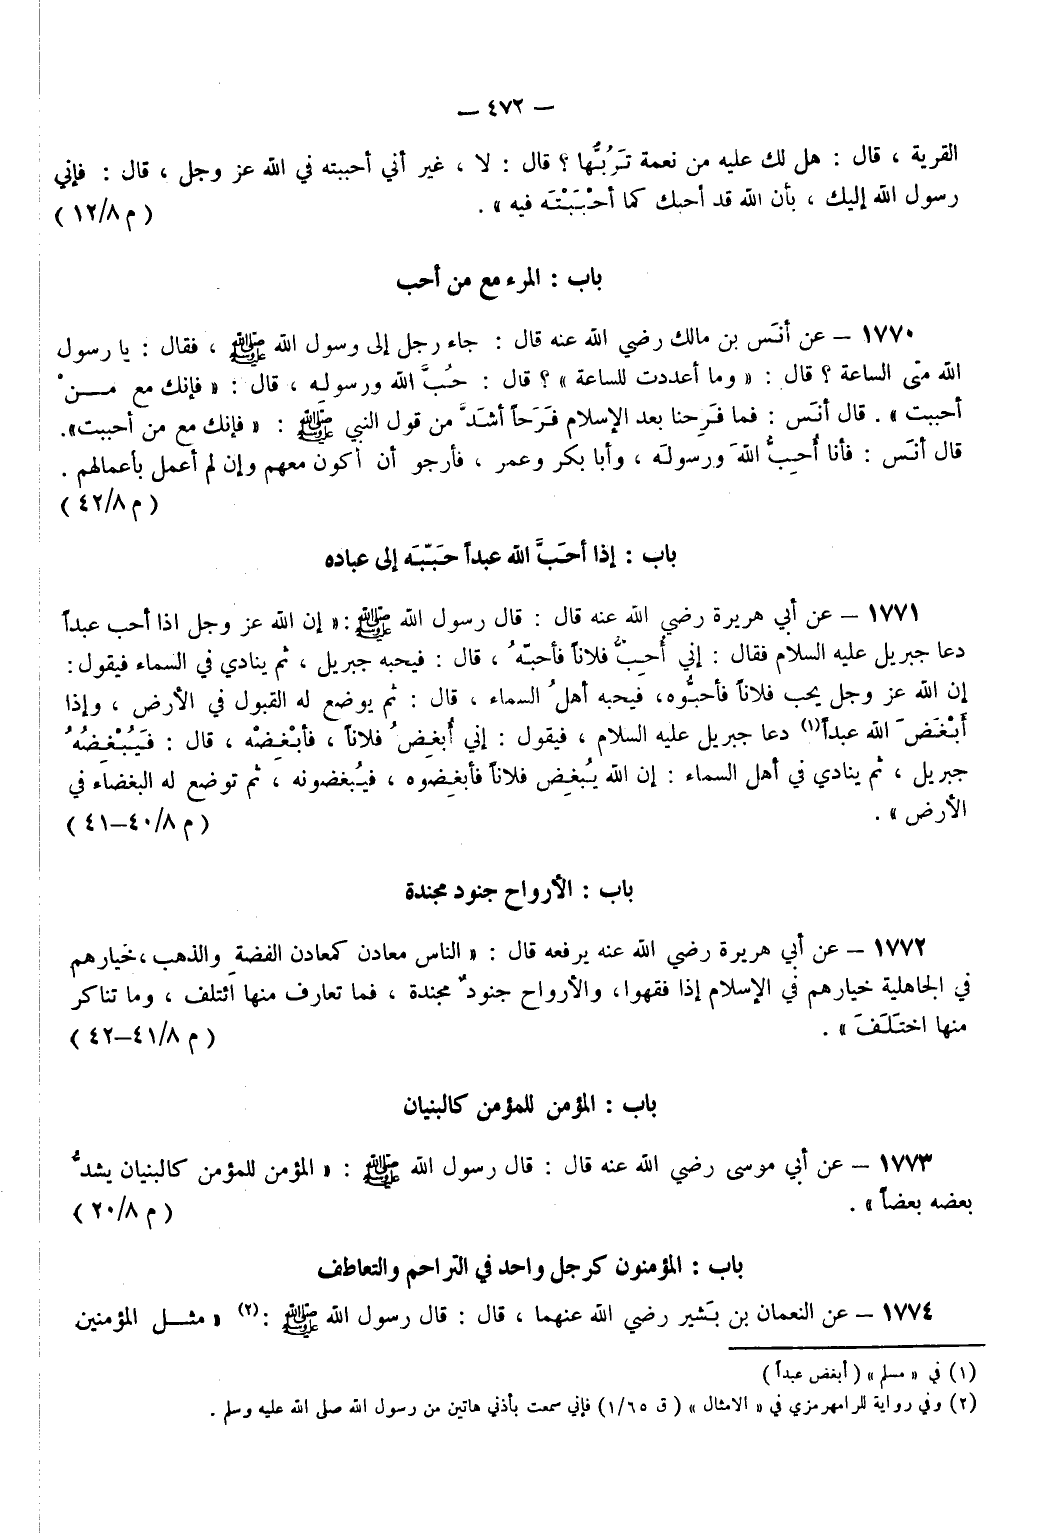 — ٤٧٢ —
القرية ، قال : هل لك عليه من نعمة تَرُبُّها ؟ قال : لا ، غير أني أحببته في الله عز وجل ، قال : فإني
رسول الله إليك ، بأن الله قد أحبك كما أحْبَبْتَه فيه » . ( م ١٢/٨ )
باب : المرء مع من أحب
١٧٧٠ – عن أنَس بن مالك رضي الله عنه قال : جاء رجل إلى رسول الله ﷺ ، فقال : يا رسول
الله متى الساعة ؟ قال : « وما أعددت للساعة » ؟ قال : حُبَّ الله ورسوله ، قال : « فإنك مع مـــنْ
أحببت » . قال أنَس : فما فَرِحنا بعد الإسلام فَرَحاً أشدَّ من قول النبي ﷺ : « فإنك مع من أحببت».
قال أنَس : فأنا أُحِبُّ اللهَ ورسولَه ، وأبا بكر وعمر ، فأرجو أن أكون معهم وإن لم أعمل بأعمالهم .
( م ٤٢/٨ )
باب : إذا أحَبَّ الله عبداً حَبّبَه إلى عباده
١٧٧١ – عن أبي هريرة رضي الله عنه قال : قال رسول الله ﷺ :« إن الله عز وجل اذا أحب عبداً
دعا جبريل عليه السلام فقال : إني أُحِبُّ فلاناً فأحبّهُ ، قال : فيحبه جبريل ، ثم ينادي في السماء فيقول :
إن الله عز وجل يحب فلاناً فأحبُّوه، فيحبه أهلُ السماء ، قال : ثم يوضع له القبول في الأرض ، وإذا
أَبْغَضَ الله عبداً(١) دعا جبريل عليه السلام ، فيقول : إني أُبغِضُ فلاناً ، فأبْغِضْه ، قال : فَيُبْغِضُهُ
جبريل ، ثم ينادي في أهل السماء : إن الله يُبغِض فلاناً فأبغِضوه ، فيُبغضونه ، ثم توضع له البغضاء في
الأرض » . ( م ٤٠/٨–٤١ )
باب : الأرواح جنود مجندة
١٧٧٢ – عن أبي هريرة رضي الله عنه يرفعه قال : « الناس معادن كمعادن الفضةِ والذهب ،خَيارهم
في الجاهلية خيارهم في الإسلام إذا فقهوا، والأرواح جنودٌ مجندة ، فما تعارف منها ائتلف ، وما تناكر
منها اختَلَفَ » . ( م ٤١/٨–٤٢ )
باب : المؤمن للمؤمن كالبنيان
١٧٧٣ – عن أبي موسى رضي الله عنه قال : قال رسول الله ﷺ : « المؤمن للمؤمن كالبنيان يشدُّ
بعضه بعضاً » . ( م ٢٠/٨ )
باب : المؤمنون كرجل واحد في التراحم والتعاطف
١٧٧٤ – عن النعمان بن بَشير رضي الله عنهما ، قال : قال رسول الله ﷺ :(٢) « مثــل المؤمنين
(١) في « مسلم » ( أبغض عبداً )
(٢) وفي رواية للرامهرمزي في « الامثال » ( ق ١/٦٥ ) فإني سمعت بأذني هاتين من رسول الله صلى الله عليه وسلم .